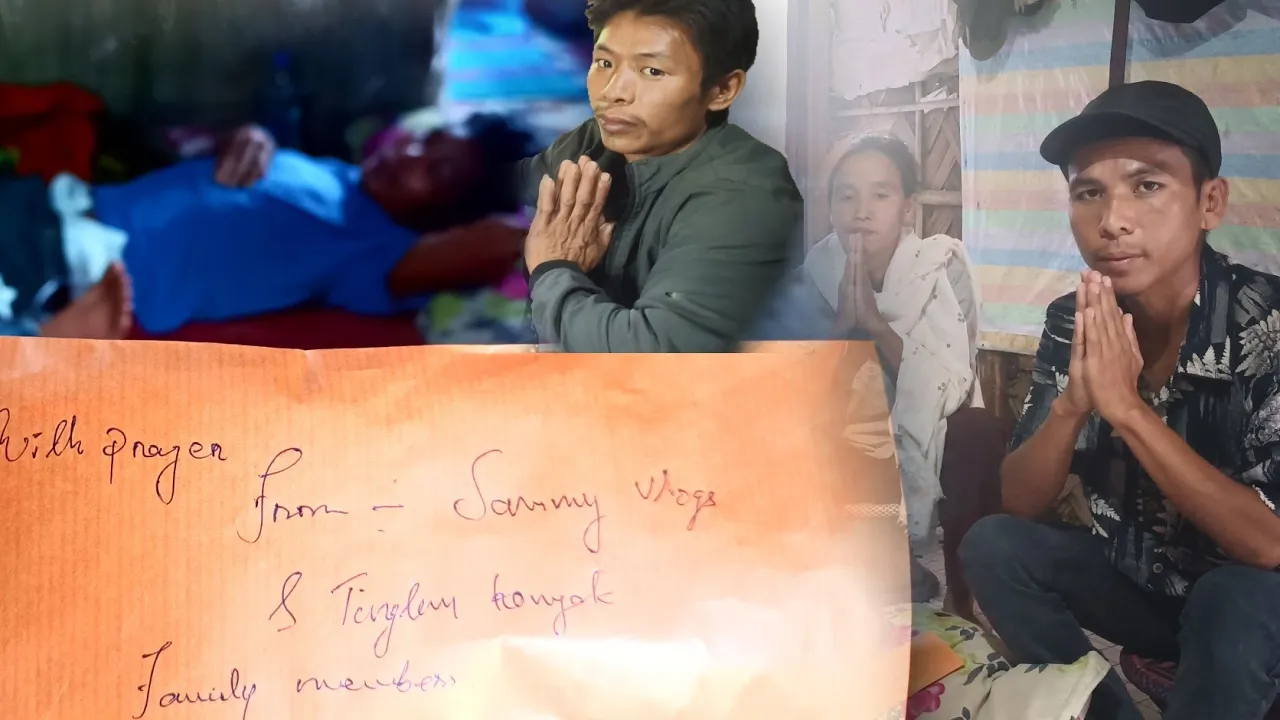 With prayer
From - Sammy vlogs
& Tinglem konyak
Family members